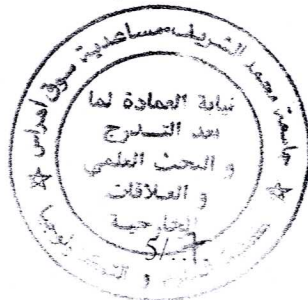 جامعة محمد الشريف مساعدية سوق أهراس
نيابة العمادة لما
بعد التدرج
و البحث العلمي
و العلاقات
الخارجية